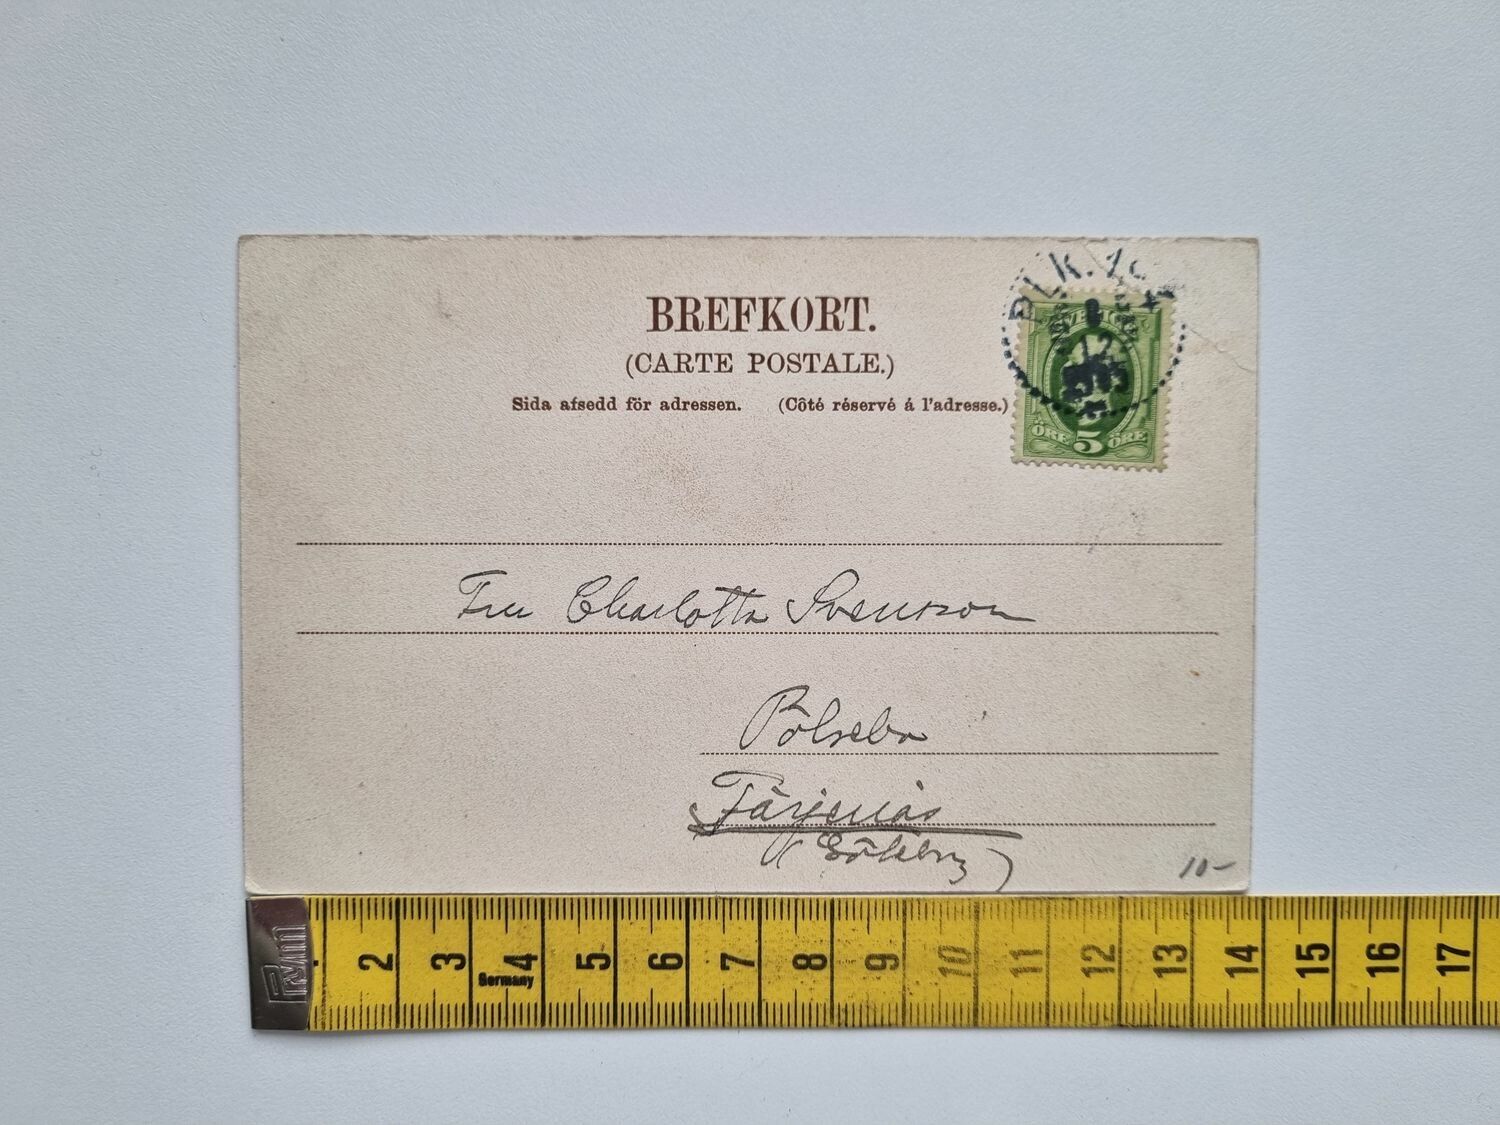 BREFKORT.
(CARTE POSTALE.)
Sida afsedd för adressen. (Côté réservé á l'adresse.)
PLK.
SVERIGE
12
1905
ÖRE 5 ÖRE
Fru Charlotta Svensson
Pölsebo
Färjenäs
(Göteborg)
10-
Prym
Germany
2 3 4 5 6 7 8 9 10 11 12 13 14 15 16 17